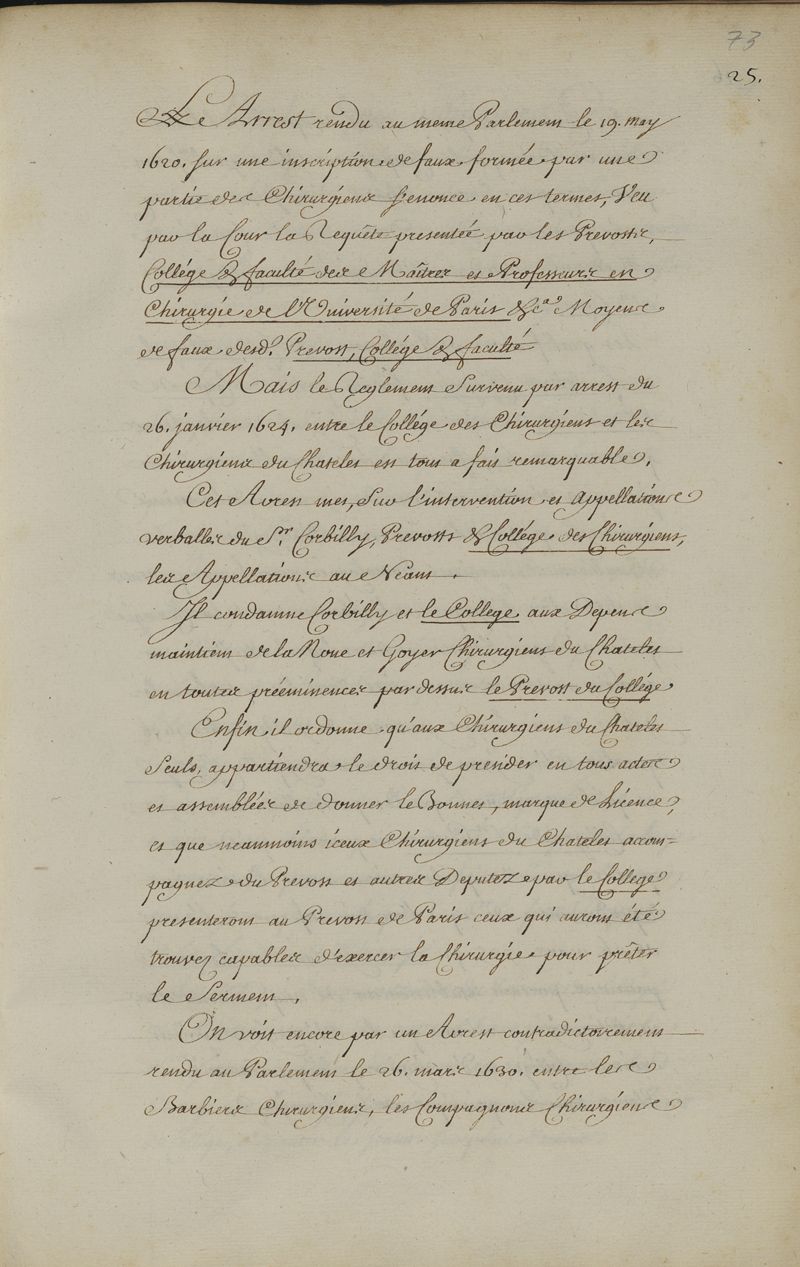 73
25.
Le Arrest rendu au meme Parlement le 19. may
1620. sur une inscription de faux formée par une
partie des Chirurgiens s'enonce en ces termes, Veu
par la Cour la Requête presentée par les Prevosts,
Collége & faculté des Maîtres et Professeurs en
Chirurgie de l'Université de Paris &ca. Moyens
de faux desd. Prevost, Collége & faculté
Mais le Reglement Survenu par arrest du
26. janvier 1624. entre le Collége des Chirurgiens et les
Chirurgiens du Chatelet est tout a fait remarquable.
Cet Arrest met, Sur l'intervention et appellations
verballes du Sr. Corbilly, Prevosts & Collége des Chirurgiens,
les Appellations au Néant.
Il condamne Corbilly et le College aux Depens
maintient de la Noue et Goyer Chirurgiens du Chatelet
en toutes prééminences par dessus le Prevost du Collége
Enfin il ordonne qu'aux Chirurgiens du Chatelet
Seuls, appartiendra le droit de presider en tous actes
et assemblées de donner le Bonnet, marque de Licence,
et que neanmoins iceux Chirurgiens du Chatelet accom=
pagnez du Prevost et autres Deputez par le College
presenteront au Prevost de Paris ceux qui auront été
trouvez capables d'exercer la Chirurgie pour prêter
le Serment.
On voit encore par un Arrest contradictoirement
rendu au Parlement le 26. mars 1630. entre les
Barbiers Chirurgiens, les Compagnons Chirurgiens